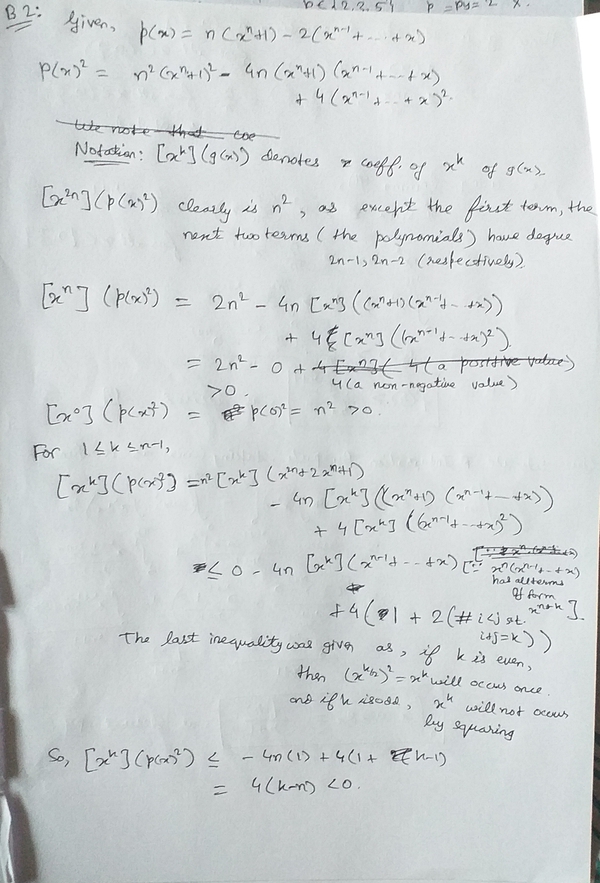 B2: Given, p(x) = n(x^n+1) - 2(x^{n-1}+...+x)
p(x)^2 = n^2(x^n+1)^2 - 4n(x^n+1)(x^{n-1}+...+x)
+ 4(x^{n-1}+...+x)^2.
We note that coe
Notation: [x^k](g(x)) denotes coeff. of x^k of g(x).
[x^{2n}](p(x)^2) clearly is n^2, as except the first term, the
next two terms (the polynomials) have degree
2n-1, 2n-2 (respectively).
[x^n] (p(x)^2) = 2n^2 - 4n [x^n]((x^n+1)(x^{n-1}+...+x))
+ 4 [x^n]((x^{n-1}+...+x)^2)
= 2n^2 - 0 + 4 [x^n]( 4(a positive value)
4(a non-negative value)
>0.
[x^0](p(x)^2) = p(0)^2 = n^2 >0.
For 1≤k≤n-1,
[x^k](p(x)^2) = n^2[x^k](x^{2n}+2x^n+1)
- 4n [x^k]((x^n+1)(x^{n-1}+...+x))
+ 4[x^k]((x^{n-1}+...+x)^2)
≤ 0 - 4n [x^k](x^{n-1}+...+x) [∵ x^n(x^{n-1}+...+x)
has all terms
of form
x^{n+k}].
+ 4(1 + 2(# i<j st.
i+j=k))
The last inequality was given as, if k is even,
then (x^{k/2})^2 = x^k will occur once.
and if k is odd, x^k will not occur
by squaring
So, [x^k](p(x)^2) ≤ -4n(1) + 4(1 + k-1)
= 4(k-n) <0.